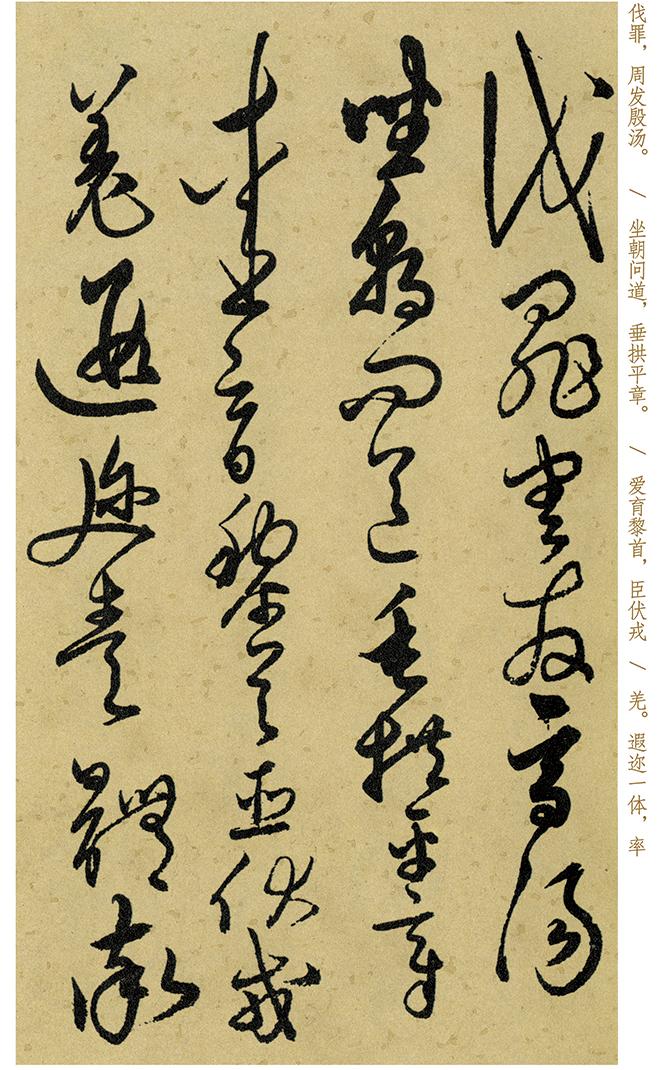 伐罪，周发殷汤。 / 坐朝问道，垂拱平章。 / 爱育黎首，臣伏戎 / 羌。遐迩一体，率
伐罪周發商湯
坐朝問道垂拱平章
愛育黎首臣伏戎
羌遐邇壹體率